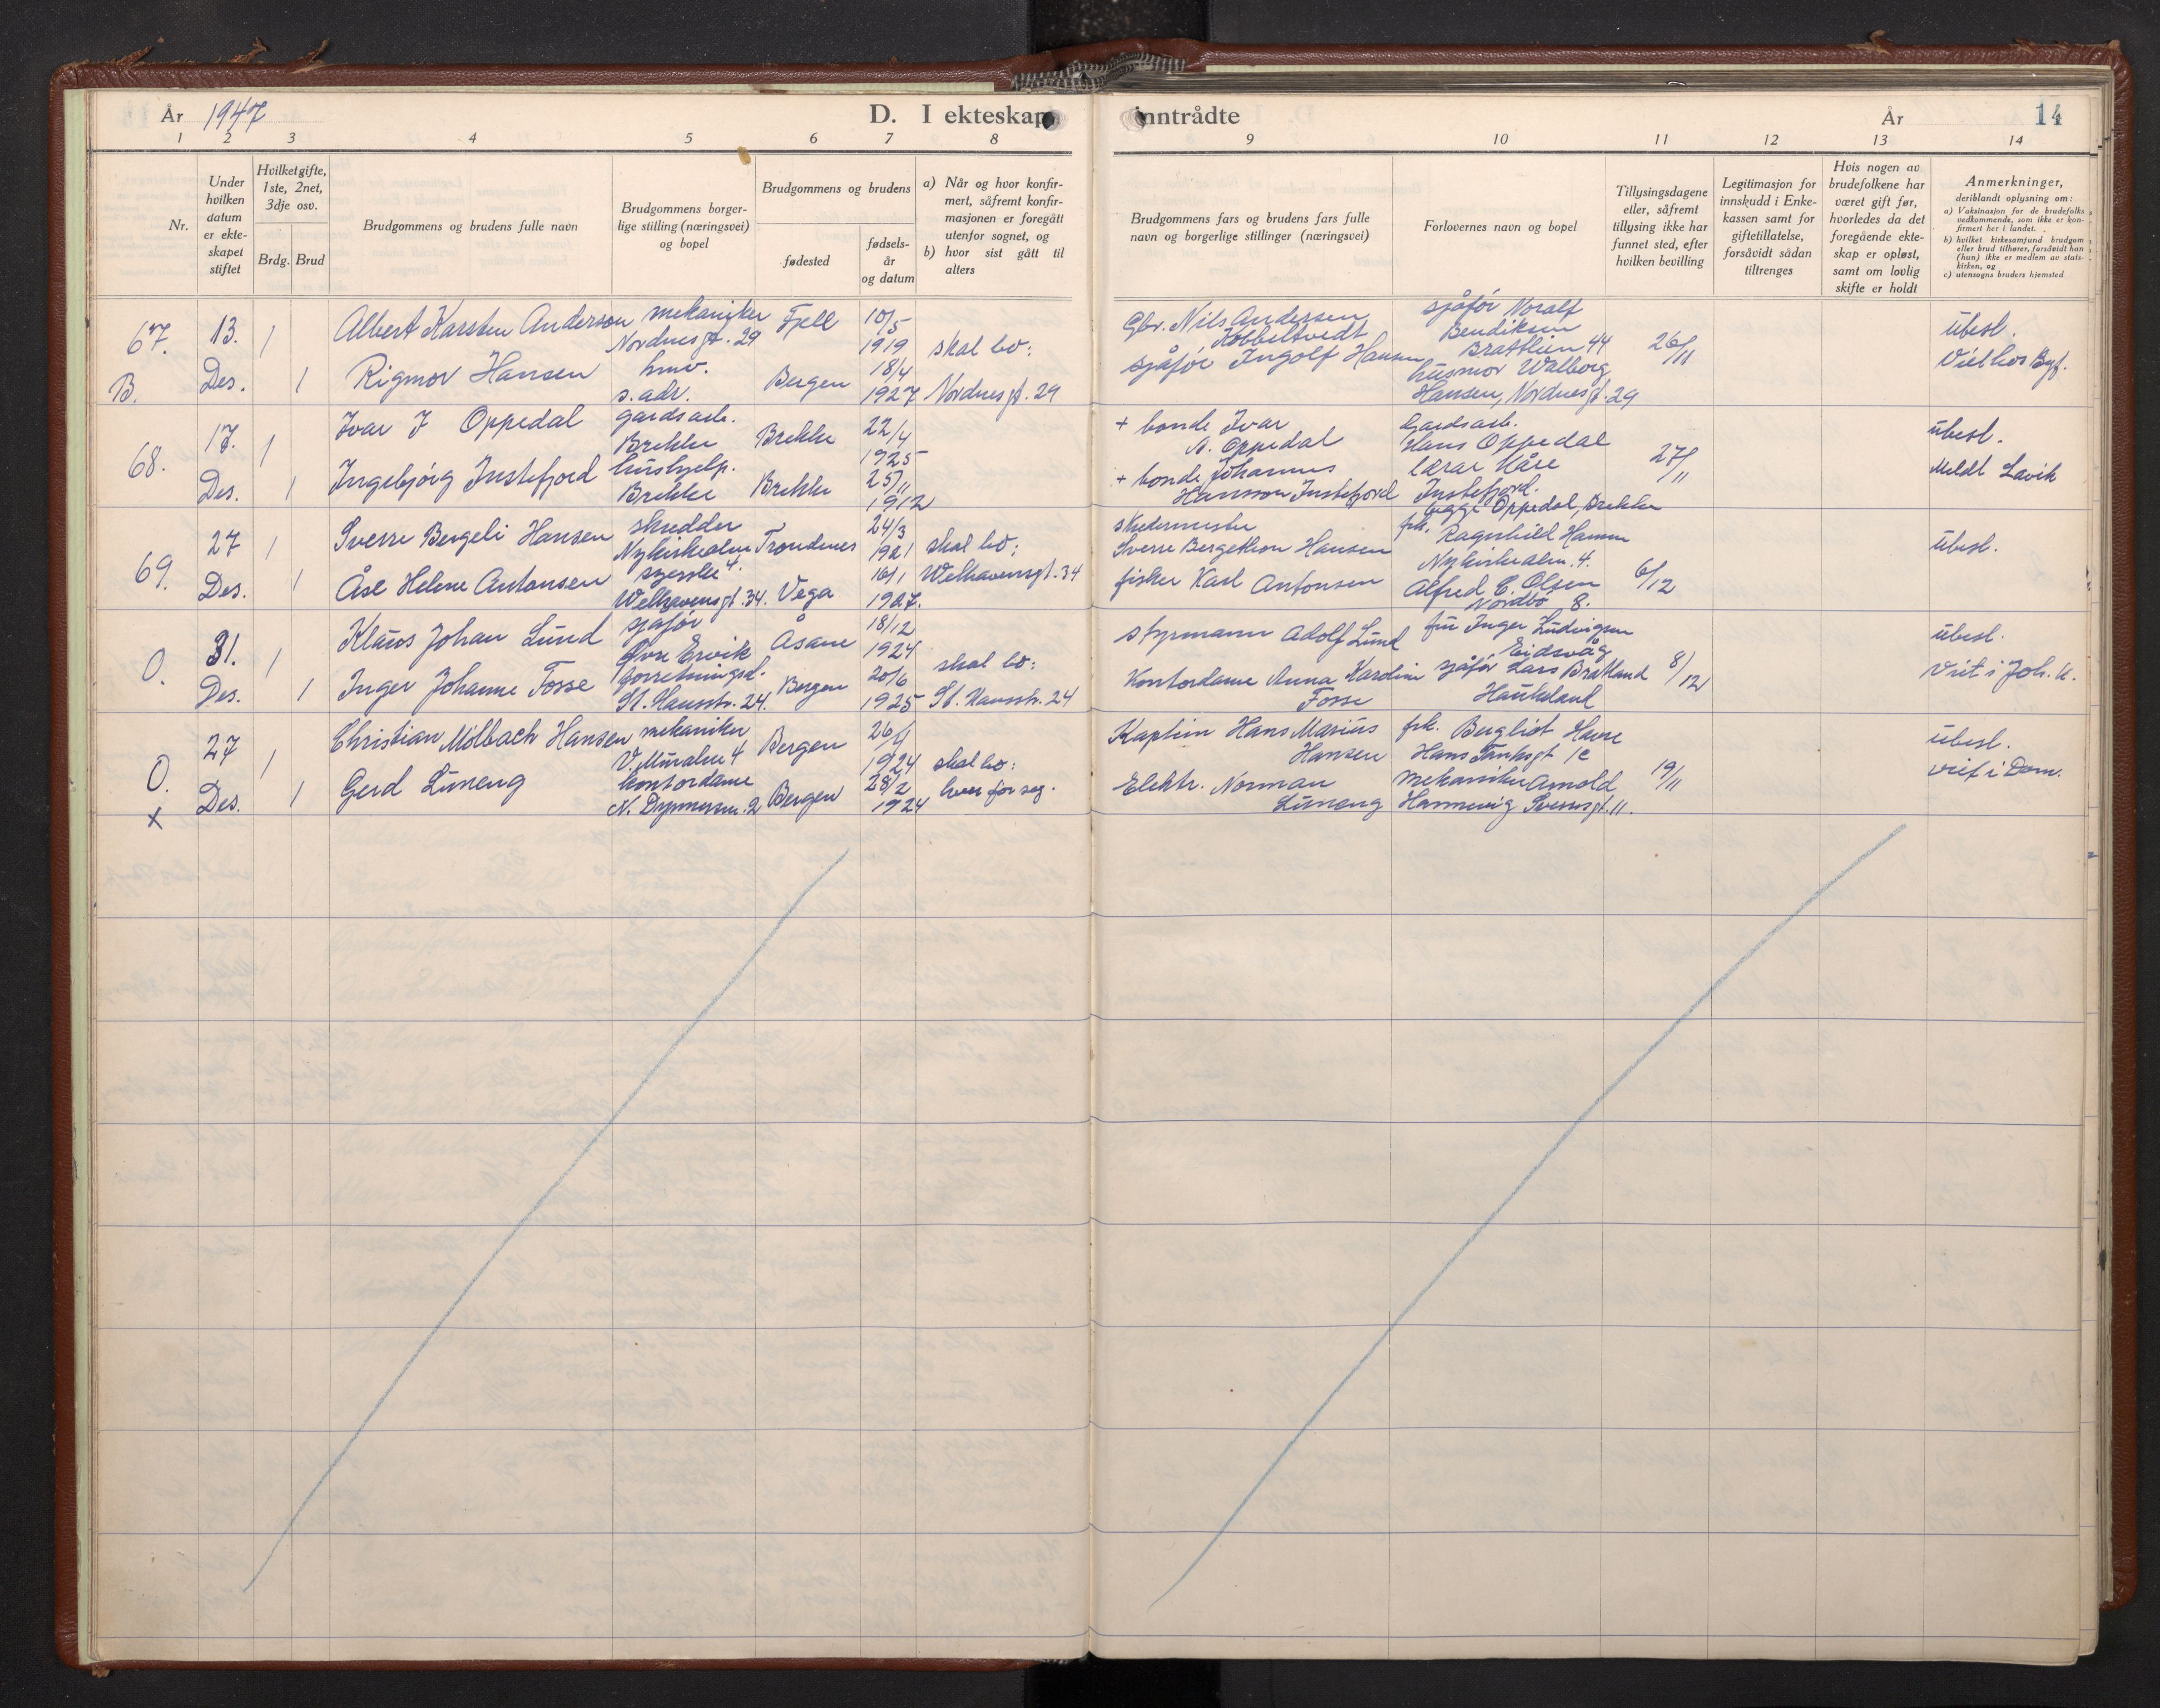 År 1947
D. I ekteskap inntrådte
År
14
1 2 3 4 5 6 7 8 9 10 11 12 13 14
Nr.
Under hvilken datum er ekteskapet stiftet
Hvilket gifte, 1ste, 2net, 3dje osv.
Brdg. Brud
Brudgommens og brudens fulle navn
Brudgommens borgerlige stilling (næringsvei) og bopel
Brudgommens og brudens
fødested
fødselsår og datum
a) Når og hvor konfirmert, såfremt konfirmasjonen er foregått utenfor sognet, og
b) hvor sist gått til alters
Brudgommens fars og brudens fars fulle navn og borgerlige stillinger (næringsvei)
Forlovernes navn og bopel
Tillysingsdagene eller, såfremt tillysing ikke har funnet sted, efter hvilken bevilling
Legitimasjon for innskudd i Enkekassen samt for giftetillatelse, forsåvidt sådan tiltrenges
Hvis nogen av brudefolkene har været gift før, hvorledes da det foregående ekteskap er opløst, samt om lovlig skifte er holdt
Anmerkninger, deriblandt oplysning om:
a) Vaksinasjon for de brudefolks vedkommende, som ikke er konfirmert her i landet.
b) hvilket kirkesamfund brudgom eller brud tilhører, forsåvidt han (hun) ikke er medlem av statskirken, og
c) utensogns bruders hjemsted
67. B.
13. Des.
1
1
Albert Karsten Anderson
mekaniker
Nordnesgt. 29
Fjell
10/5
1919
Rigmor Hansen
hmv.
s. adr.
Bergen
18/4
1927
skal bo:
Nordnesgt. 29
Gbr. Nils Andersen
Kobbeltvedt
sjåfør Ingolf Hansen
sjåfør Noralf
Bendiksen
Brattlien 44
husmor Walborg
Hansen, Nordnesgt. 29
26/11
ubesl.
Viet hos Byf.
68.
17. Des.
1
1
Ivar J Oppedal
gardsarb.
Brekke
Brekke
22/4
1925
Ingebjørg Instefjord
hushjelp.
Brekke
Brekke
25/11
1912
+ bonde Ivar
A. Oppedal
+ bonde Johannes
Hansson Instefjord
Gardsarb.
Hans Oppedal
lærar Kåre
Instefjord.
begge Oppedal, Brekke
27/11
ubesl.
Meldt Lavik
69.
27 Des.
1
1
Sverre Bergeli Hansen
skredder
Nykirkealm. 4.
Trondenes
24/3
1921
Åse Helene Antonsen
syerske
Welhavensgt. 34.
Vega
16/1
1927.
skal bo:
Welhavensgt. 34
skredermester
Sverre Bergethon Hansen
fisker Karl Antonsen
frk.
Ragnhild Hamm
Nykirkealm. 4.
Alfred E. Olsen
Nordbø 8.
6/12
ubesl.
O.
31. Des.
1
1
Klaus Johan Lund
sjåfør
Øvre Ervik
Åsane
18/12
1924
Inger Johanne Fosse
forretningsd.
St. Hansstr. 24.
Bergen
20/6
1925
skal bo:
St. Hansstr. 24
styrmann Adolf Lund
Kontordame Anna Karoline
Fosse
fru Inger Ludvigsen
Eidsvåg
sjåfør Lars Bratland
Haukeland
8/12
ubesl.
Viet i Joh. k.
O. x
27 Des.
1
1
Christian Mølbach Hansen
mekaniker
V. Muralm. 4
Bergen
1924
Gerd Limeng
kontordame
Bergen
28/2
1924
skal bo:
hver for seg.
Kaptein Hans Marius
Hansen
Elektr. Norman
Limeng
frk. Bergliot Havre
Hans Tanksgt 1c
mekaniker Arnold
Hannevig Sverresgt. 11.
19/11
ubesl.
viet i Dom.